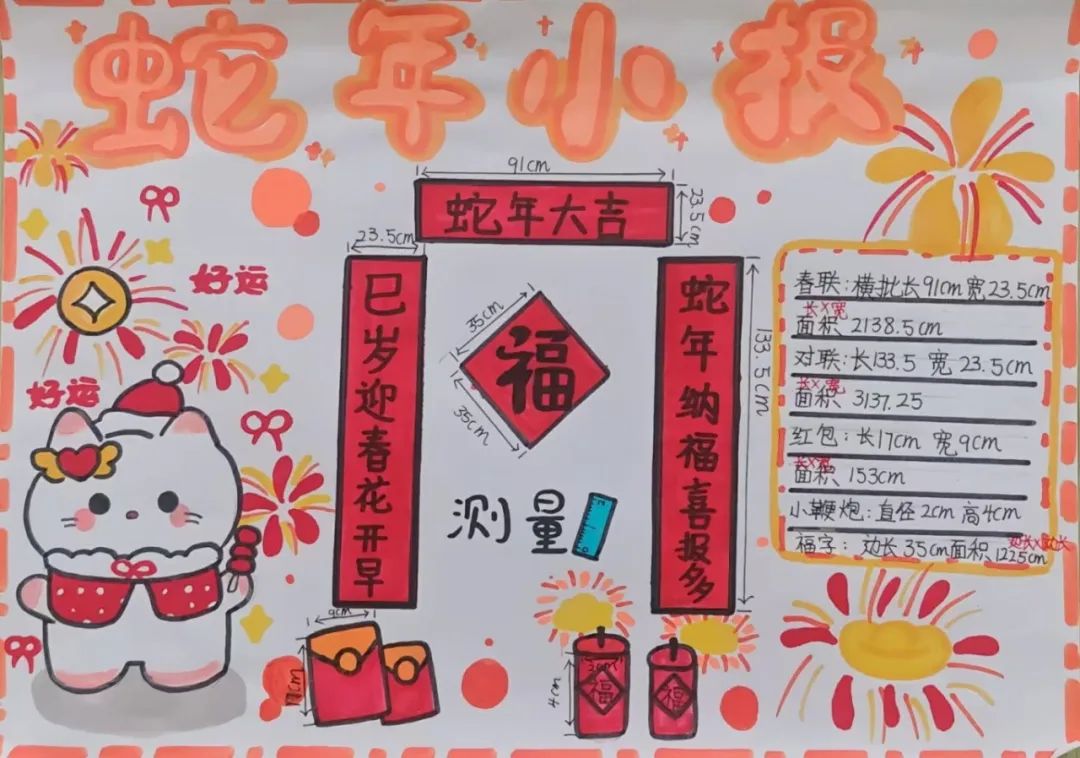 蛇年小报
91cm
蛇年大吉
23.5cm
23.5cm
巳岁迎春花开早
35cm
35cm
福
蛇年纳福喜报多
133.5cm
好运
好运
测量
春联:横批长91cm宽23.5cm
长×宽
面积 2138.5cm
对联:长133.5 宽 23.5cm
长×宽
面积 3137.25
红包:长17cm 宽9cm
长×宽
面积 153cm
小鞭炮:直径2cm 高4cm
福字: 边长35cm面积1225cm
边长×边长
9cm
17cm
2cm
4cm
福
福